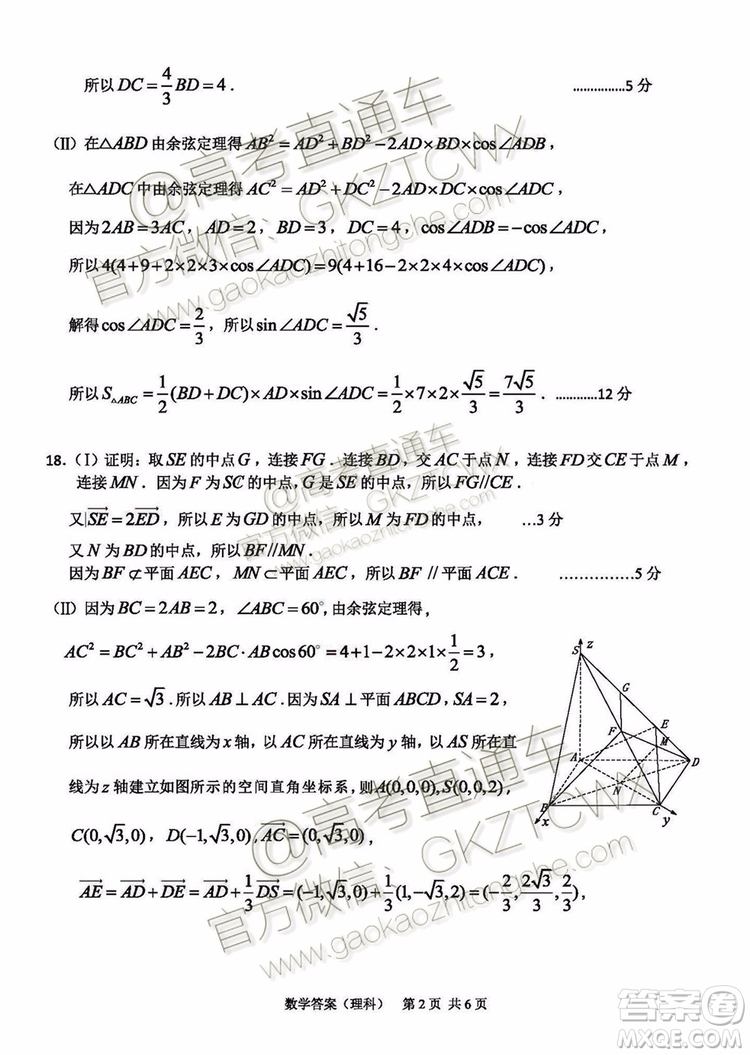 所以 DC = 4/3 BD = 4 . ...............5 分
(II) 在△ABD 由余弦定理得 AB² = AD² + BD² − 2AD × BD × cos∠ADB ,
在△ADC 中由余弦定理得 AC² = AD² + DC² − 2AD × DC × cos∠ADC ,
因为 2AB = 3AC , AD = 2 , BD = 3 , DC = 4 , cos∠ADB = −cos∠ADC ,
所以 4(4+9+2×2×3×cos∠ADC) = 9(4+16−2×2×4×cos∠ADC) ,
解得 cos∠ADC = 2/3 , 所以 sin∠ADC = √5/3 .
所以 S△ABC = 1/2 (BD + DC) × AD × sin∠ADC = 1/2 × 7 × 2 × √5/3 = 7√5/3 . ............12 分
18.(I) 证明：取 SE 的中点 G ，连接 FG ．连接 BD ，交 AC 于点 N ，连接 FD 交 CE 于点 M ，
连接 MN ．因为 F 为 SC 的中点，G 是 SE 的中点，所以 FG//CE ．
又|SE→ = 2ED→，所以 E 为 GD 的中点，所以 M 为 FD 的中点， ...3 分
又 N 为 BD 的中点，所以 BF//MN ．
因为 BF ⊄ 平面 AEC ，MN ⊂ 平面 AEC ，所以 BF // 平面 ACE ． ……………5 分
(II) 因为 BC = 2AB = 2 ，∠ABC = 60° , 由余弦定理得 ,
AC² = BC² + AB² − 2BC · AB cos 60° = 4+1−2×2×1×1/2 = 3 ,
所以 AC = √3 . 所以 AB ⊥ AC . 因为 SA ⊥ 平面 ABCD , SA = 2 ,
所以以 AB 所在直线为 x 轴，以 AC 所在直线为 y 轴，以 AS 所在直
线为 z 轴建立如图所示的空间直角坐标系，则 A(0,0,0), S(0,0,2) ,
C(0,√3,0) , D(−1,√3,0), AC→ = (0,√3,0) ,
AE→ = AD→ + DE→ = AD→ + 1/3 DS→ = (−1,√3,0) + 1/3 (1,−√3,2) = (−2/3, 2√3/3, 2/3) ,
S
z
G
E
F
M
A
D
N
B
C
x
y
数学答案（理科） 第 2 页 共 6 页
@高考直通车
官方微信：GKZTCWX
www.gaokaozhitongche.com
@高考直通车
官方微信：GKZTCWX
www.gaokaozhitongche.com
@高考直通车
官方微信：GKZTCWX
www.gaokaozhitongche.com
答案圈
MXQE.COM